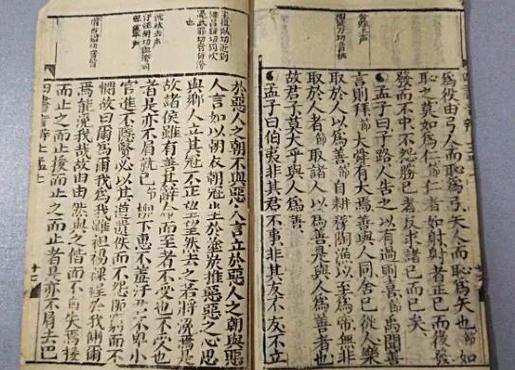 為役由弓人而恥為弓矢人而恥為矢也節如
恥之莫如為仁節仁者如射射者正已而後發
發而不中不怨勝己者反求諸己而已矣
孟子曰子路人告之以有過則喜節禹聞善
言則拜節大舜有大焉善與人同舍已從人樂
取於人以為善節自耕稼陶漁以至為帝無非
取於人者節取諸人以為善是與人為善者也
故君子莫大乎與人為善
孟子曰伯夷非其君不事非其友不友不立
於惡人之朝不與惡人言立於惡人之朝與惡
人言如以朝衣朝冠坐於塗炭推惡惡之心思
與鄉人立其冠不正望望然去之若將浼焉是
故諸侯雖有善其辭命而至者不受也不受也
者是亦不屑就已節柳下惠不羞汙君不卑小
官進不隱賢必以其道遺佚而不怨阨窮而不
憫故曰爾為爾我為我雖袒裼裸裎於我側爾
焉能浼我哉故由由然與之偕而不自失焉援
而止之而止援而止之而止者是亦不屑去已